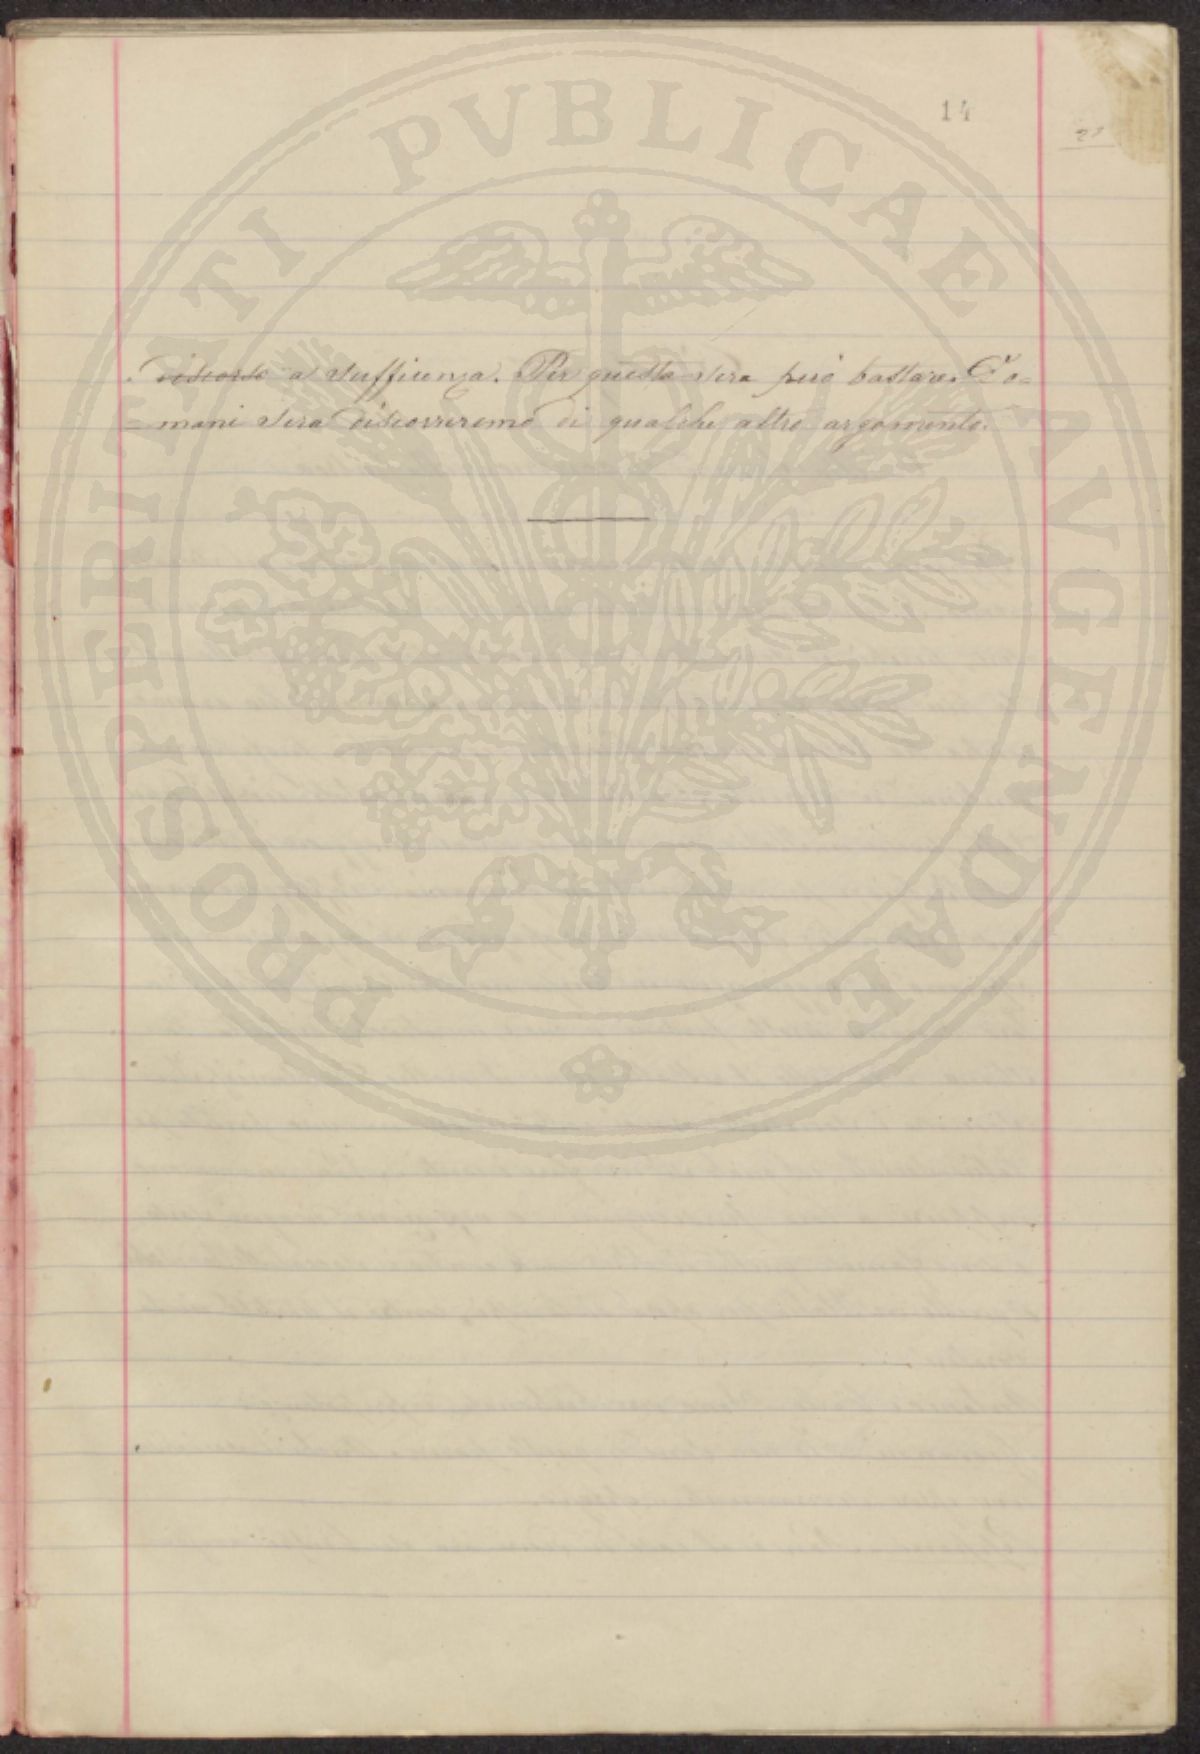 14
discorso a sufficienza. Per questa sera può bastare. Do=
=mani sera discorreremo di qualche altro argomento.
PROSPERITATI PVBLICAE AVGENDAE